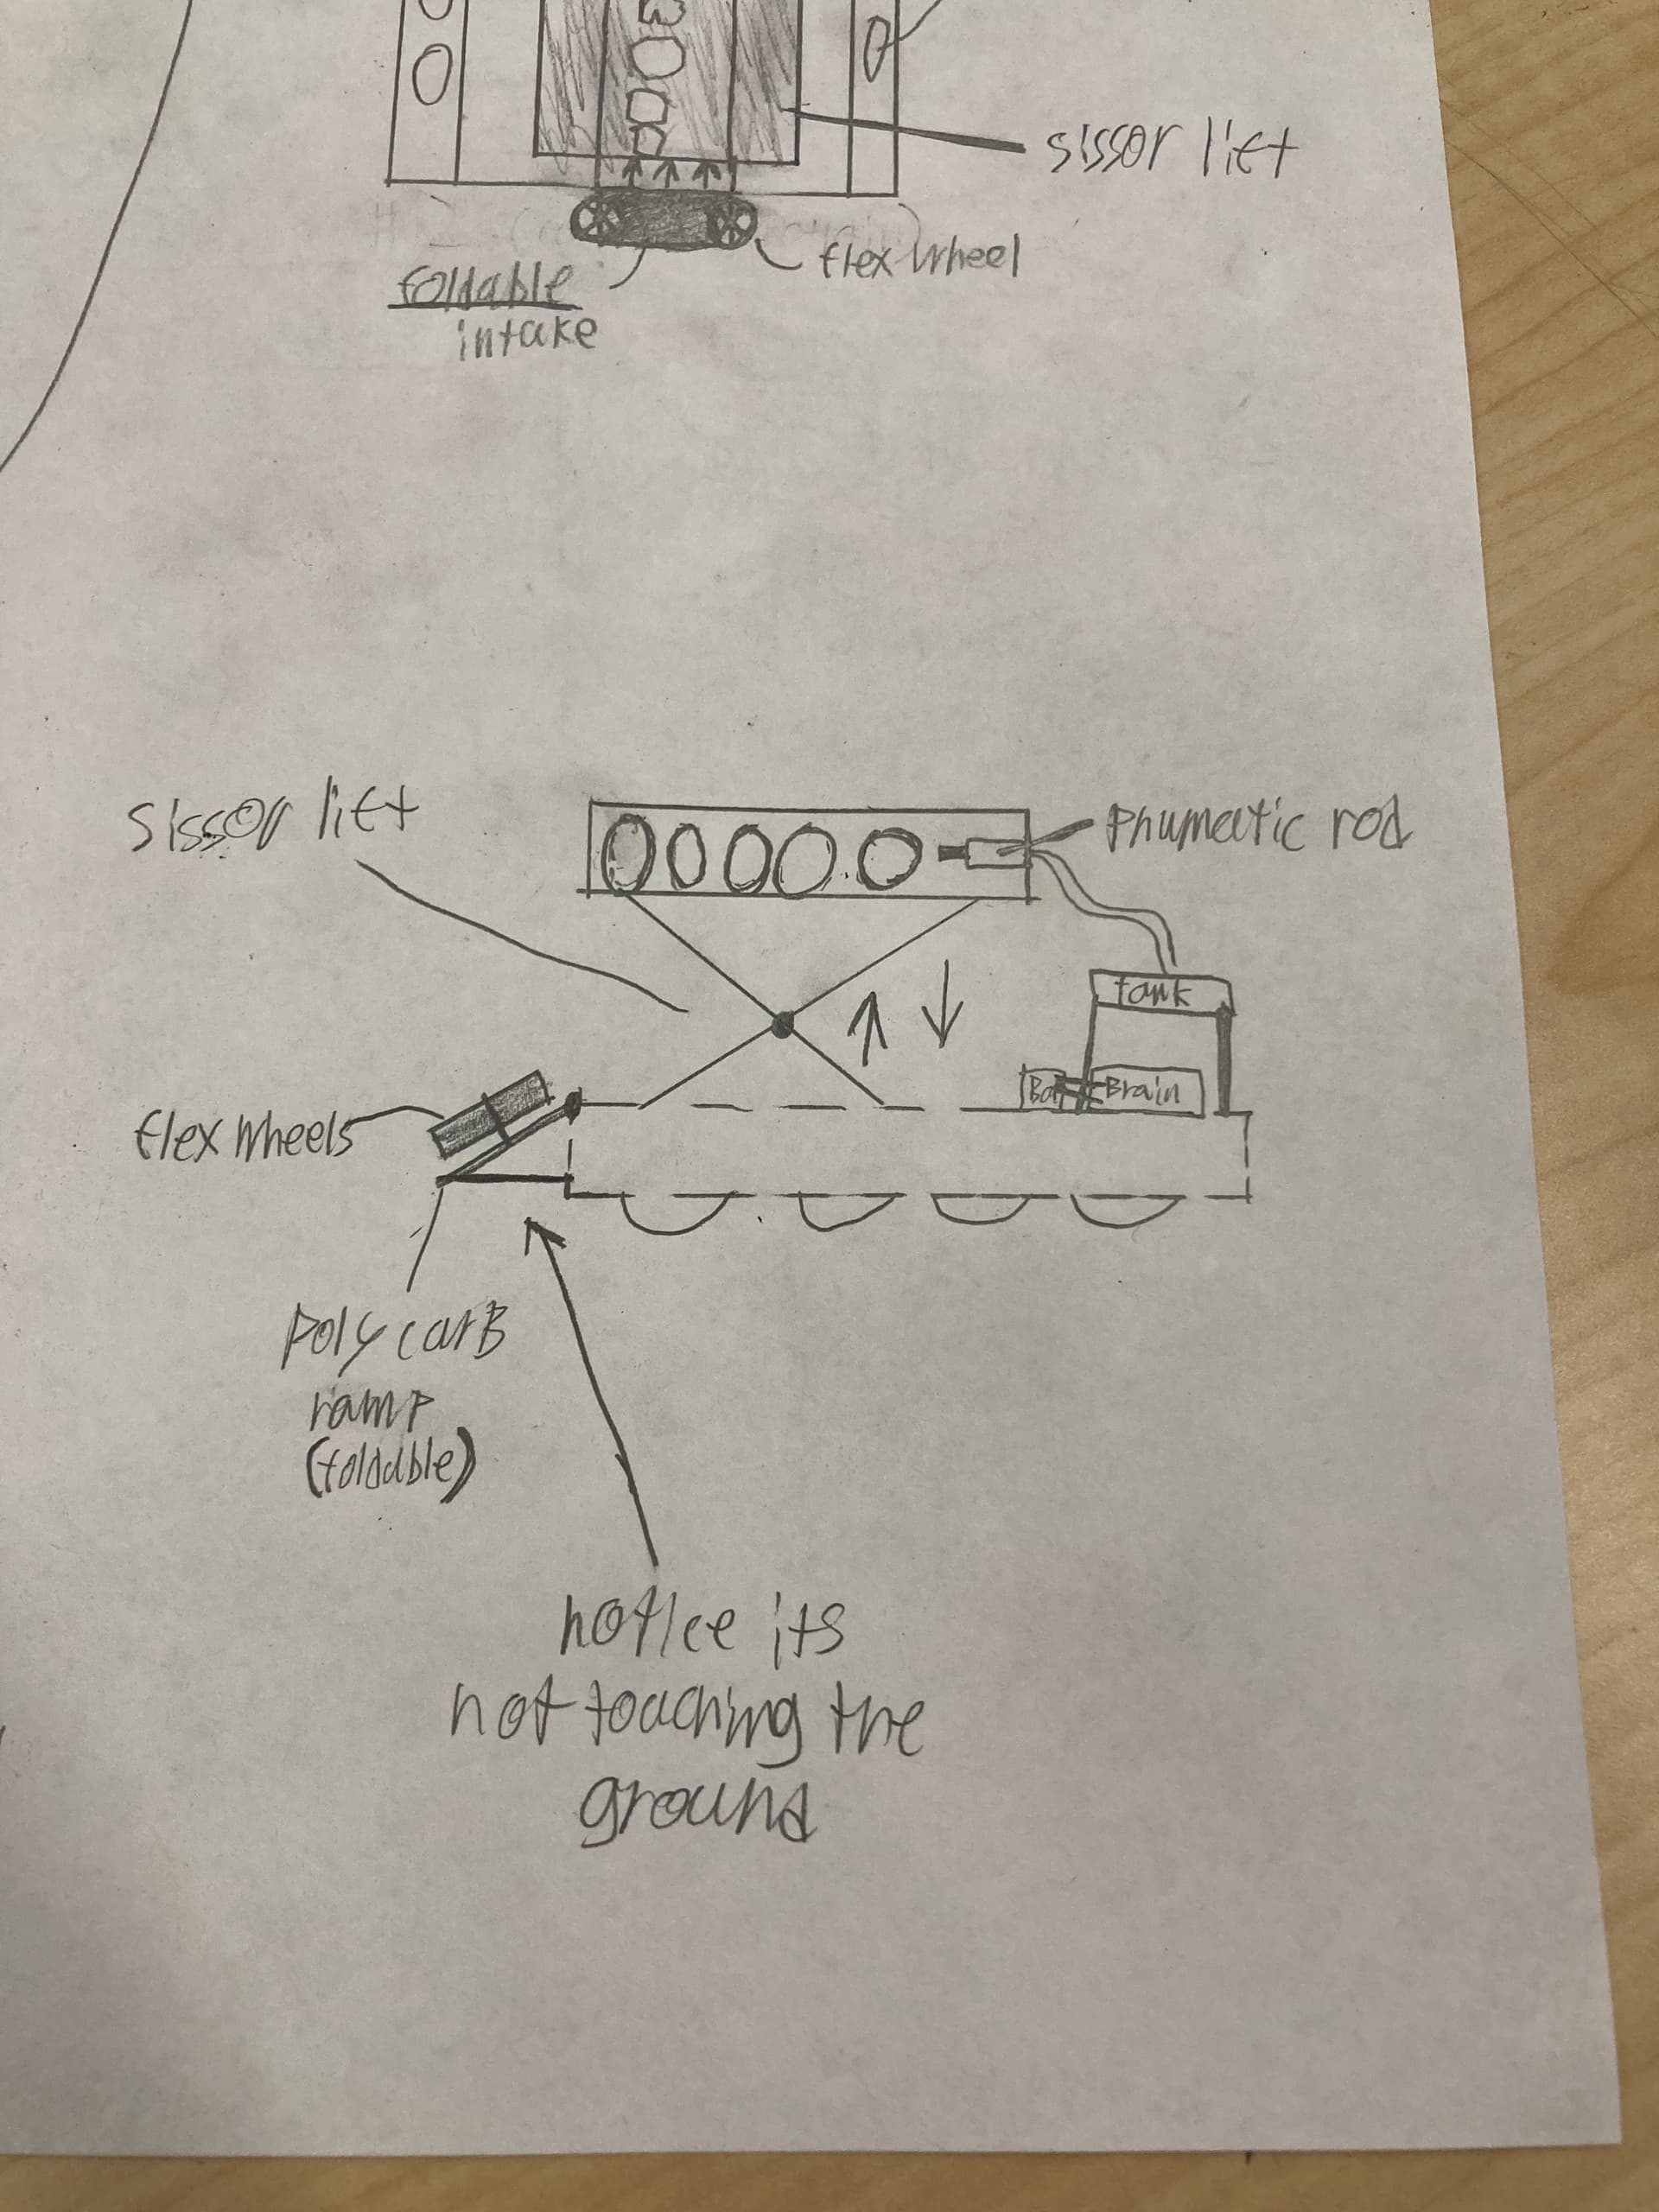 sissor lift
flex wheel
foldable
intake
sissor lift
Phumatic rod
tank
Bat
Brain
flex wheels
Poly carB
ramp
(foldable)
notice its
not touching the
ground